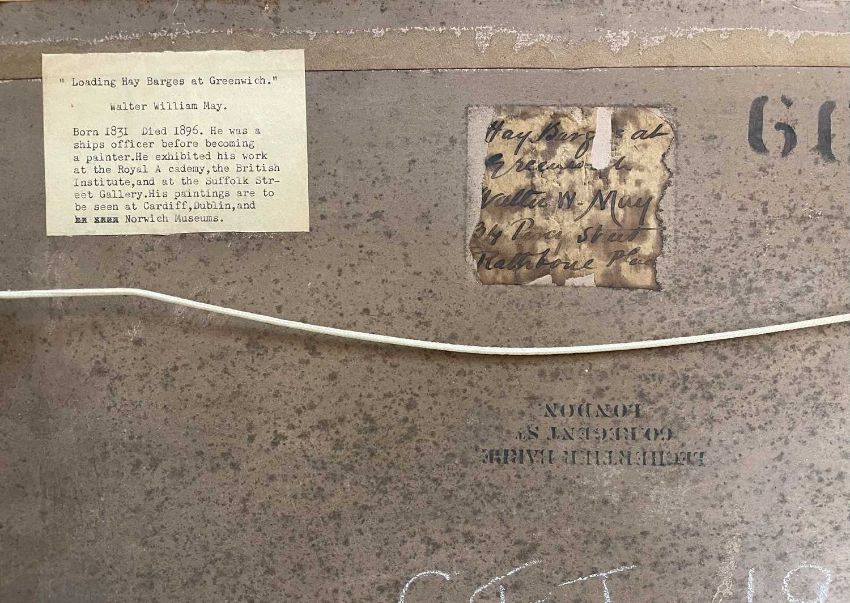 " Loading Hay Barges at Greenwich."
Walter William May.
Born 1831 Died 1896. He was a
ships officer before becoming
a painter.He exhibited his work
at the Royal A cademy,the British
Institute,and at the Suffolk Str-
eet Gallery.His paintings are to
be seen at Cardiff,Dublin,and
Norwich Museums.
Hay Barges at
Greenwich
Walter W. May
34 Percy Street
Rathbone Place
60
LECHERTIER BARBE
60 REGENT ST
LONDON